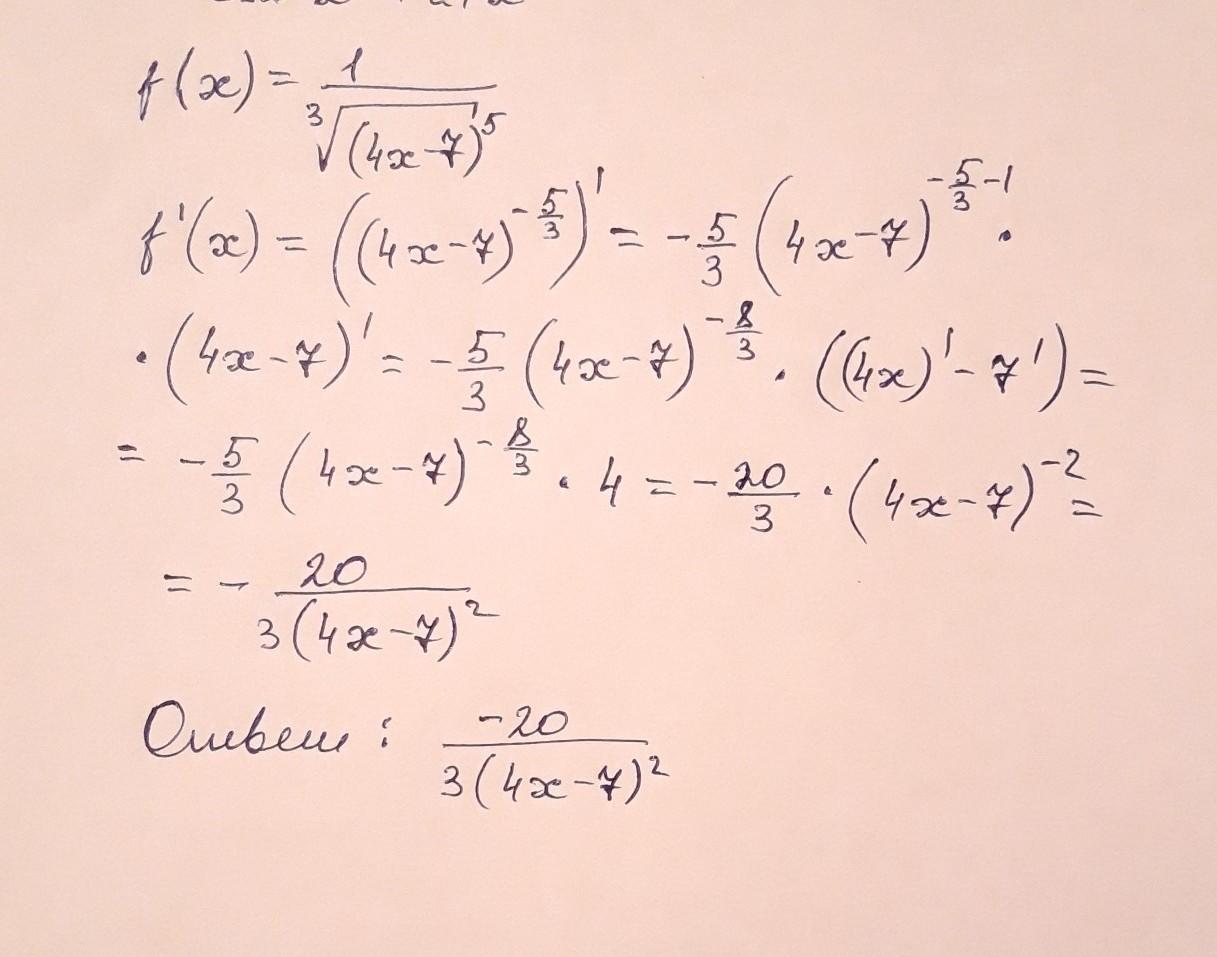 f(x) = 1/∛((4x-7)^5)
f'(x) = ((4x-7)^(-5/3))' = -5/3 (4x-7)^(-5/3-1) ·
· (4x-7)' = -5/3 (4x-7)^(-8/3) · ((4x)' - 7') =
= -5/3 (4x-7)^(-8/3) · 4 = -20/3 · (4x-7)^(-2) =
= - 20/(3(4x-7)^2)
Ответ : -20/(3(4x-7)^2)